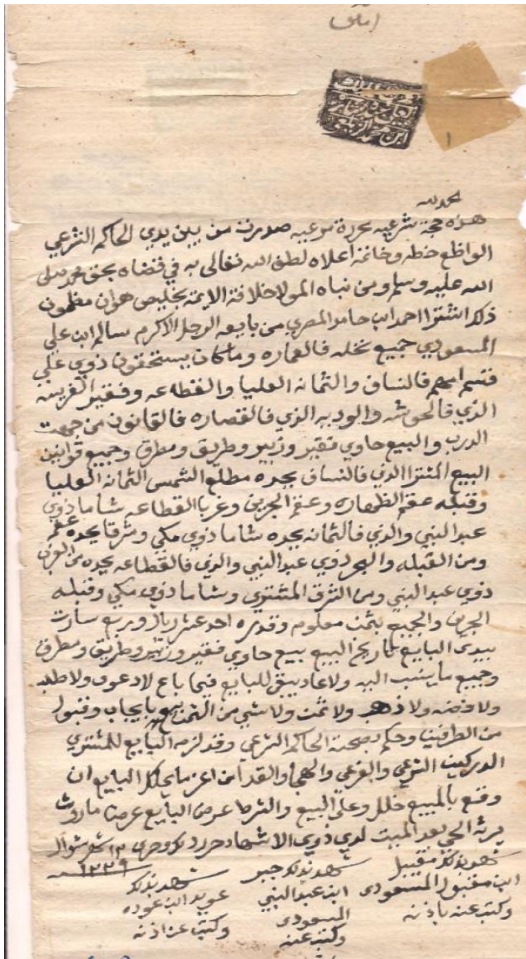 الحمد لله
هذه حجة شرعيه محررة مرعيه صدرت من بين يدي الحاكم الشرعي
الواضع خطه وخاتمه أعلاه لطف الله تعالى به في قضاه بحق محمد صلى
الله عليه وسلم ومن نباه المولا خلافة الايمه بخليص هو ان مظمون
ذلك اشترا احمد ابن حامد المصري من بايعه الرجل الاكرم سالم ابن علي
المسعودي جميع نخله فالعماره وما كان يستحقون ذوي علي
قسم ابيهم فالنساف والثمانه العليا والقطاعه وفقير الغريسه
الذي فالحوشه والوديه الذي فالقصاره فالقانون من جهت
الدرب والبيع حاوي فقير وزبير وطريق ومطرق وجميع قوانين
البيع المشترا الذي فالنساف يحده مطلع الشمس الثمانه العليا
وقبله عقم الظهاره وعقم الجرين وغربا القطاعه شاما ذوي
عبد النبي والذي فالثمانه يحده شاما ذوي مكي وشرقا يحده عقم
ومن القبله والبحر ذوي عبد النبي والذي فالقطاعه يحده من الغرب
ذوي عبد النبي ومن الشرق المشتري وشاما ذوي مكي وقبله
الجرين والجيب بثمن معلوم وقدره احد عشر ريال وربع سارت
بيدى البايع تاريخ البيع بيع حاوي فقير وزبير وطريق ومطرق
وجميع ما ينسب اليه ولا عاد يبقى للبايع فيما باع لا دعوى ولا طلب
ولا فضه ولا ذهب ولا ثمن ولا شي من الثمن بيع بايجاب وقبول
من الطرفين وحكم بصحته الحاكم الشرعي وقد لزم البايع للمشتري
الدركين الشرعي والفرعي وا والقد امن اعز ما يملك البايع ان
وقع بالمبيع خلل وعلى البيع والشرط عرض البايع عرضا ماروث
يرثه الحي بعد الميت لدي ذوي الاشهاد حرر ذلك وجرى ١٣ شهر شوال
١٢٢٩
شهد بذلك مقيبل شهد بذلك جبر شهد بذلك
ابن مقبول المسعودي ابن عبد النبي عويد ابن عوده
وكتب عنه باذنه المسعودي وكتب عن اذنه
وكتب عنه